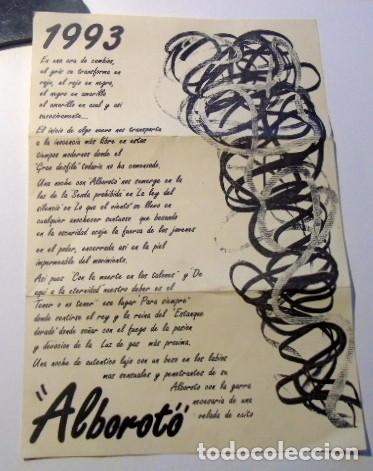 1993
Es una era de cambios,
el gris se transforma en
rojo, el rojo en negro,
el negro en amarillo
el amarillo en azul y así
sucesivamente...
El inicio de algo nuevo nos transporta
a la inocencia más libre en estos
tiempos modernos donde el
"Gran desfile" todavía no ha comenzado.
Una noche con "Alboroto" nos sumerge en la
luz de la "Senda prohibida" en "La ley del
silencio" en "Lo que el viento" se llevo en
cualquier anochecer suntuoso que bañando
en la oscuridad acoje la fuerza de los jovenes
en el poder, encerrada así en la piel
impermeable del movimiento.
Así pues "Con la muerte en los talones" y "De
aquí a la eternidad" nuestro deber es el
"Tener o no tener" ese lugar "Para siempre"
donde sentirse el rey y la reina del "Estanque
dorado" donde soñar con el fuego de la pasion
y devocion de la Luz de gas más proxima.
Una noche de autentico lujo con un beso en los labios
mas sensuales y penetrantes de su
Alboroto con la garra
necesaria de una
velada de exito
"Alborotó"
todocoleccion
todocoleccion.net